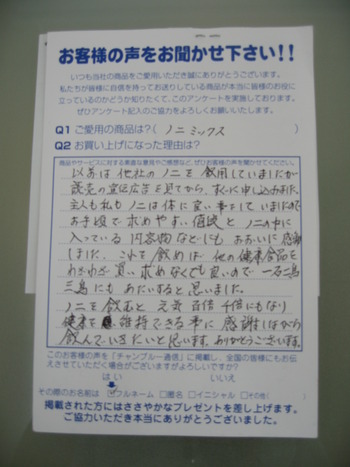 お客様の声をお聞かせ下さい!!
いつも当社の商品をご愛用いただき誠にありがとうございます。
私たちが皆様に自信を持ってお送りしている商品が本当に皆様のお役に
立っているのかどうか知りたくて、このアンケートを実施しております。
ぜひアンケート記入のご協力をよろしくお願いいたします。
Q1 ご愛用の商品は?( ノニミックス )
Q2 お買い上げになった理由は?
商品やサービスに対する率直な意見やご感想など、ぜひお客様の声を聞かせてください。
以前は他社のノニを飲用していましたが
読売の宣伝広告を見てから、すぐに申し込みました。
主人も私もノニは体に良い事をしていましたので
お手頃で求めやすい値段とノニの中に
入っている内容物などにもおおいに感謝
しました。これを飲めば他の健康食品を
わざわざ買い求めなくても良いので一石二鳥
三鳥にもあたいすると思いました。
ノニを飲むと元気百倍千倍にもなり
健康を維持できる事に感謝しながら
飲んでいきたいと思います。ありがとうございます。
このお客様の声を「チャンプルー通信」に掲載し、全国の皆様にもお伝
えさせていただく場合がございますがよろしいですか?
はい いいえ
その際のお名前は □フルネーム □匿名 □イニシャル □その他( )
掲載された方にはささやかなプレゼントを差し上げます。
ご協力いただき本当にありがとうございました。